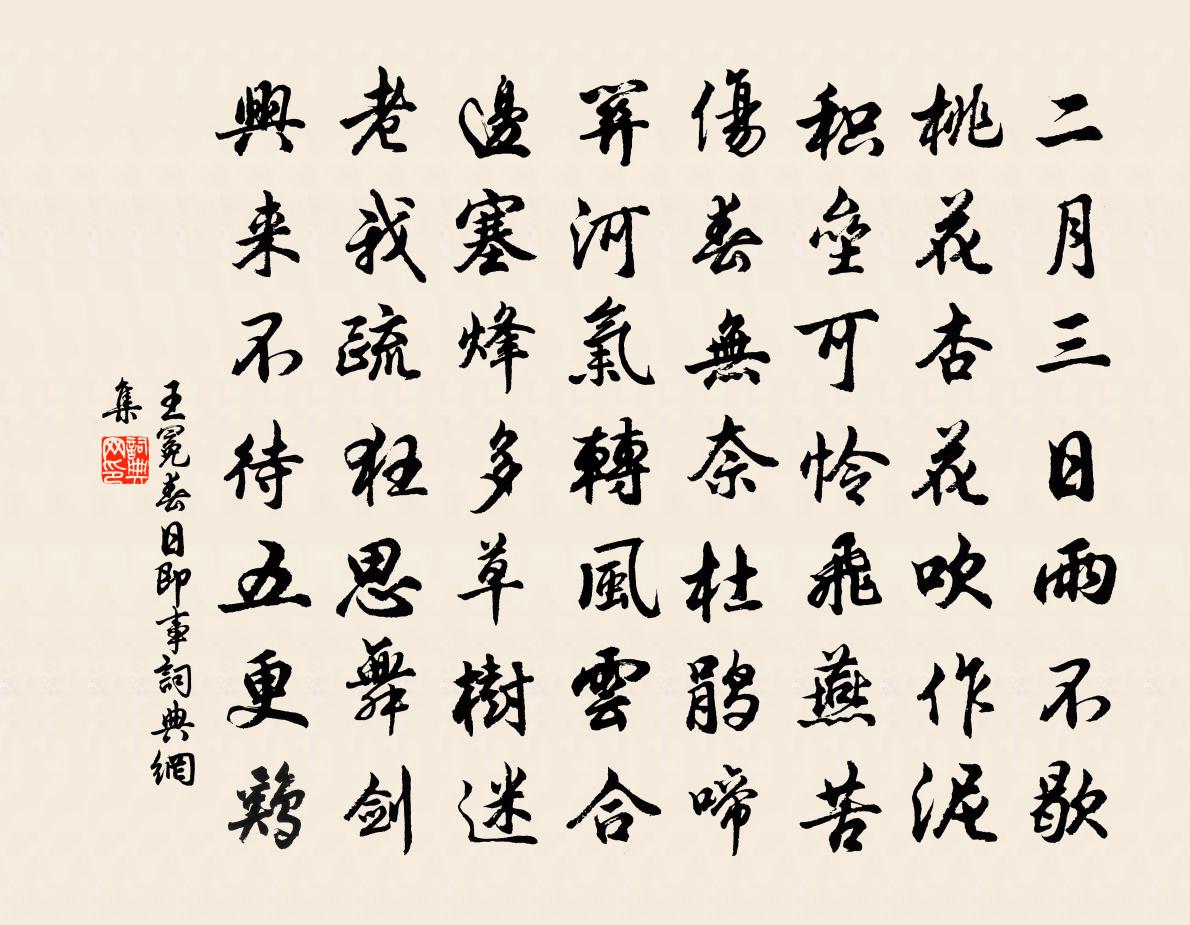 二月三日雨不歇
桃花杏花吹作泥
积垒可怜飛燕苦
傷春無奈杜鹃啼
關河氣轉風雲合
邊塞烽多草樹迷
老我疏狂思舞剑
興来不待五更鷄
王冕春日即事詞典網
集
詞典
网印